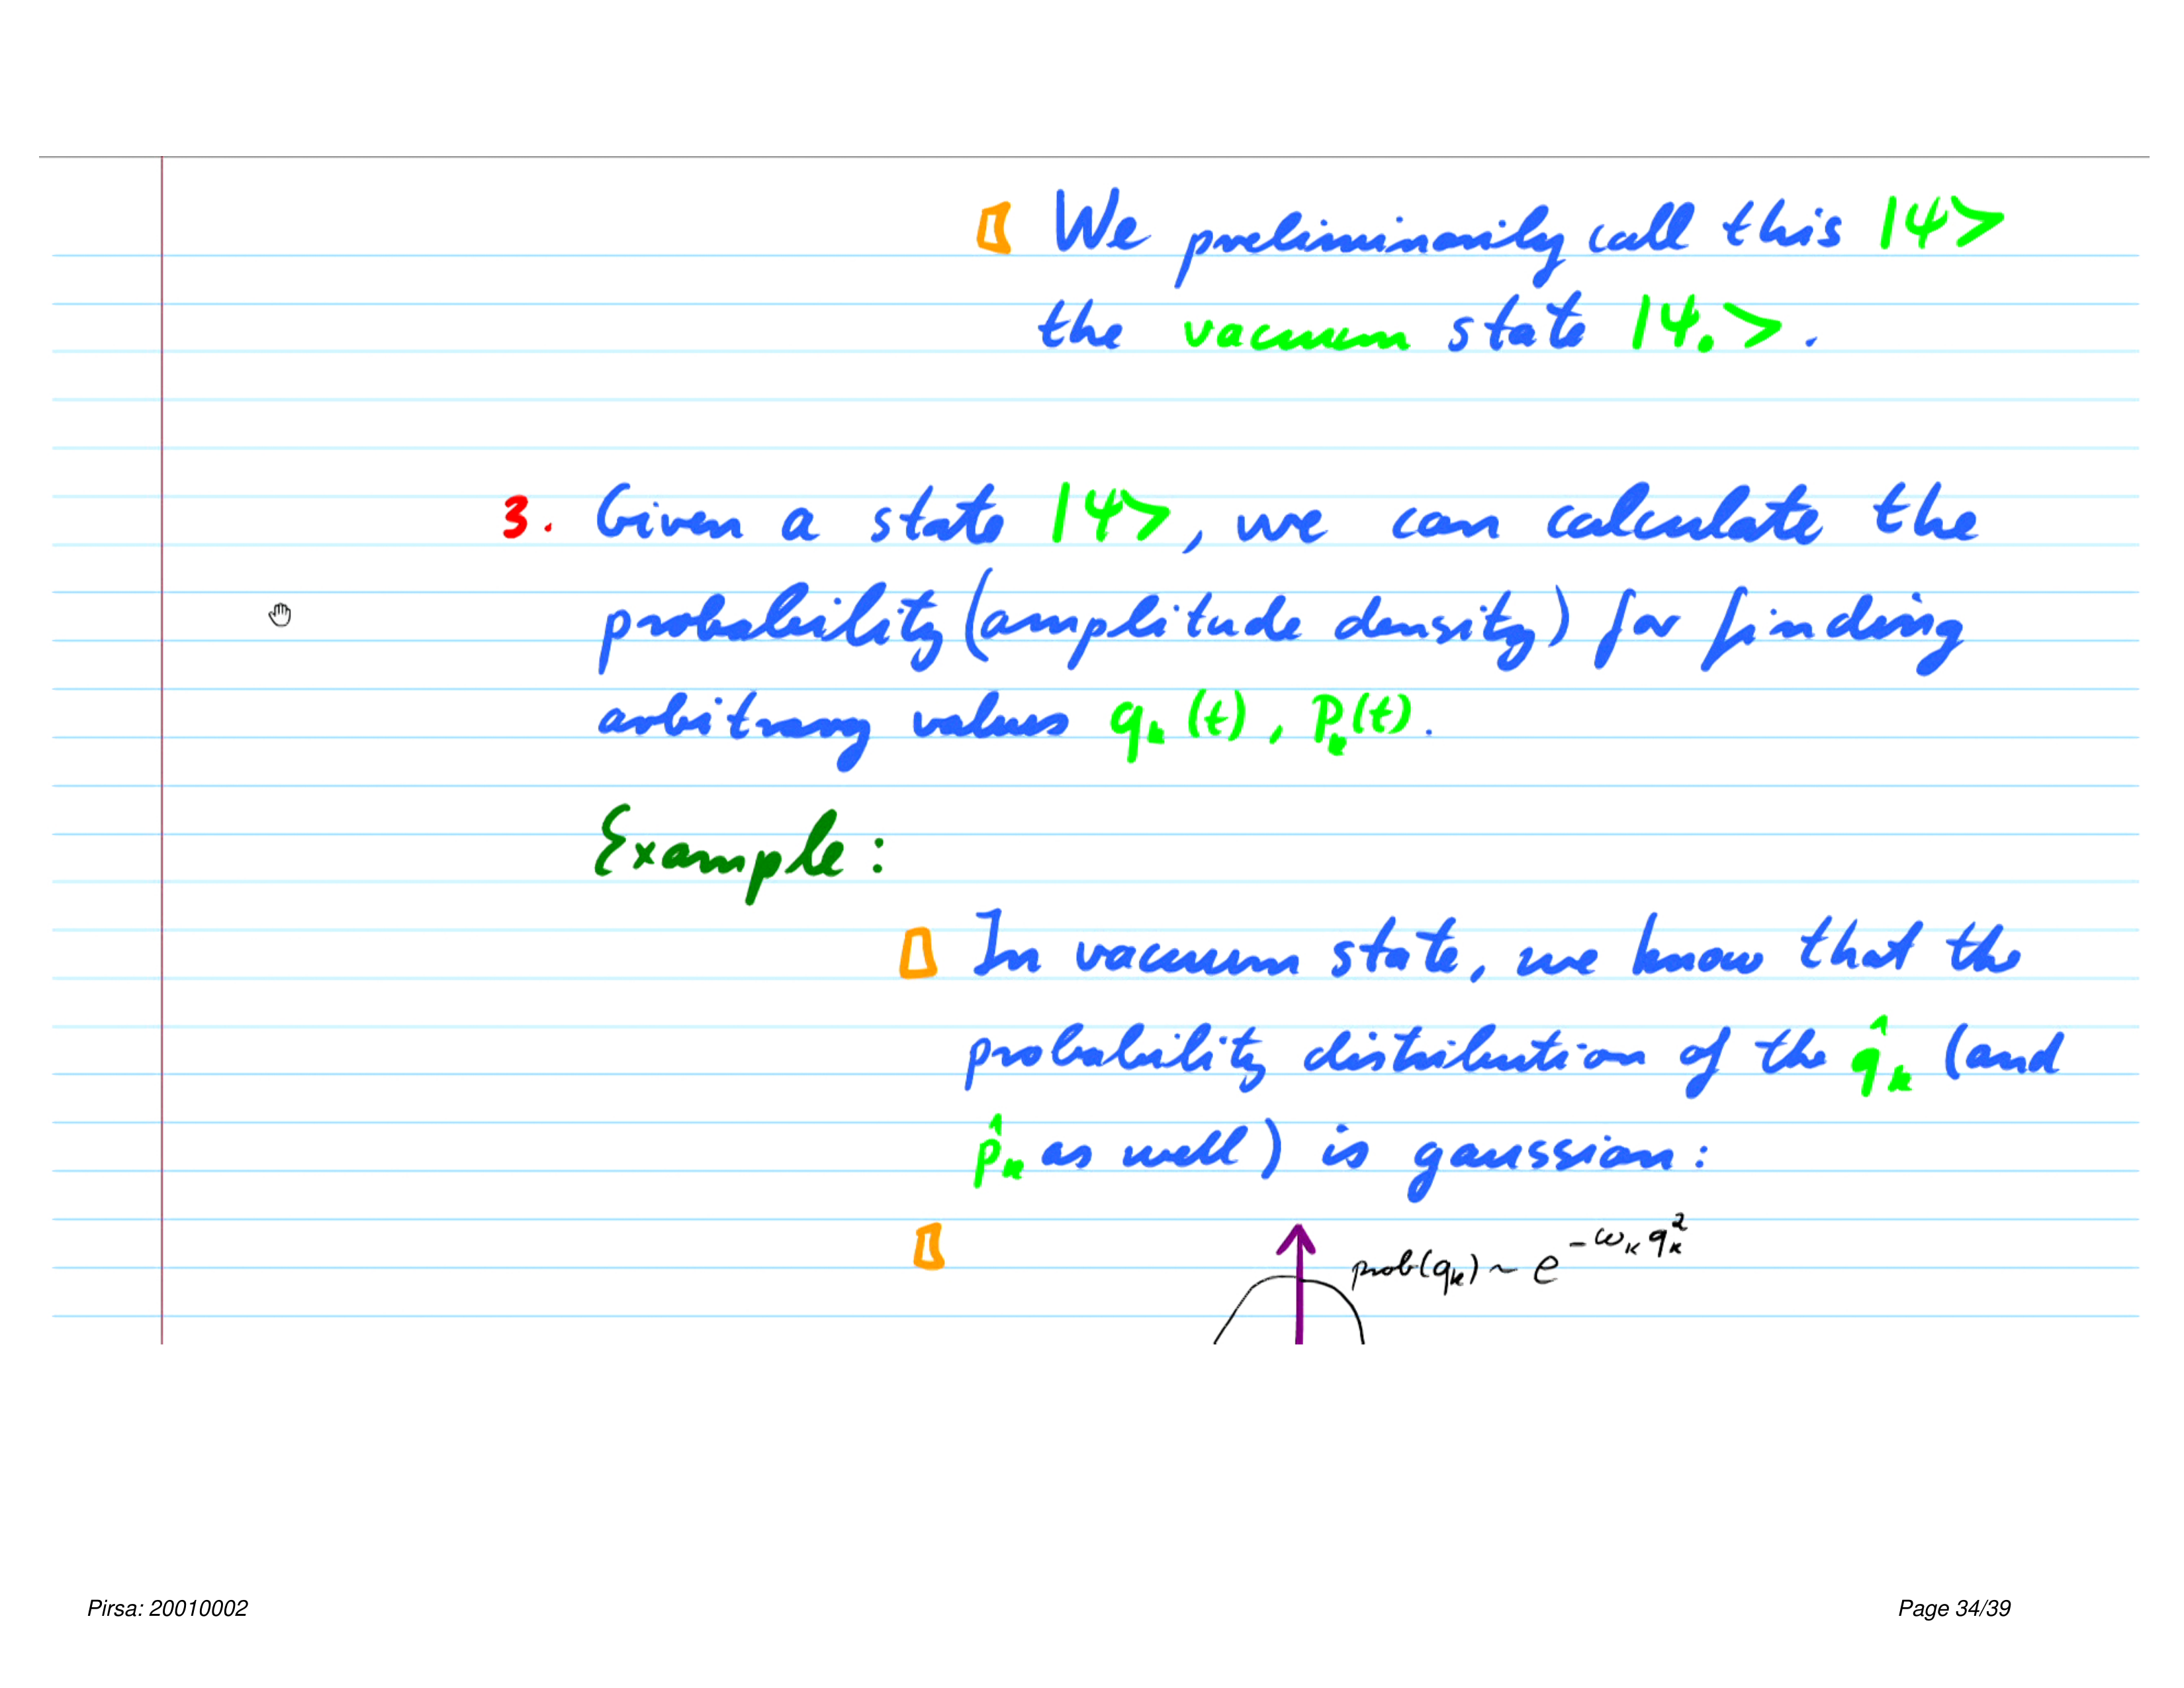 We preliminarily call this |Ψ>
the vacuum state |Ψ₀>.
3. Given a state |Ψ>, we can calculate the
probability (amplitude density) for finding
arbitrary values qₖ(t), pₖ(t).
Example:
In vacuum state, we know that the
probability distribution of the q̂ₖ (and
p̂ₖ as well) is gaussian:
prob(qₖ) ~ e^{-ωₖ qₖ²}
Pirsa: 20010002
Page 34/39